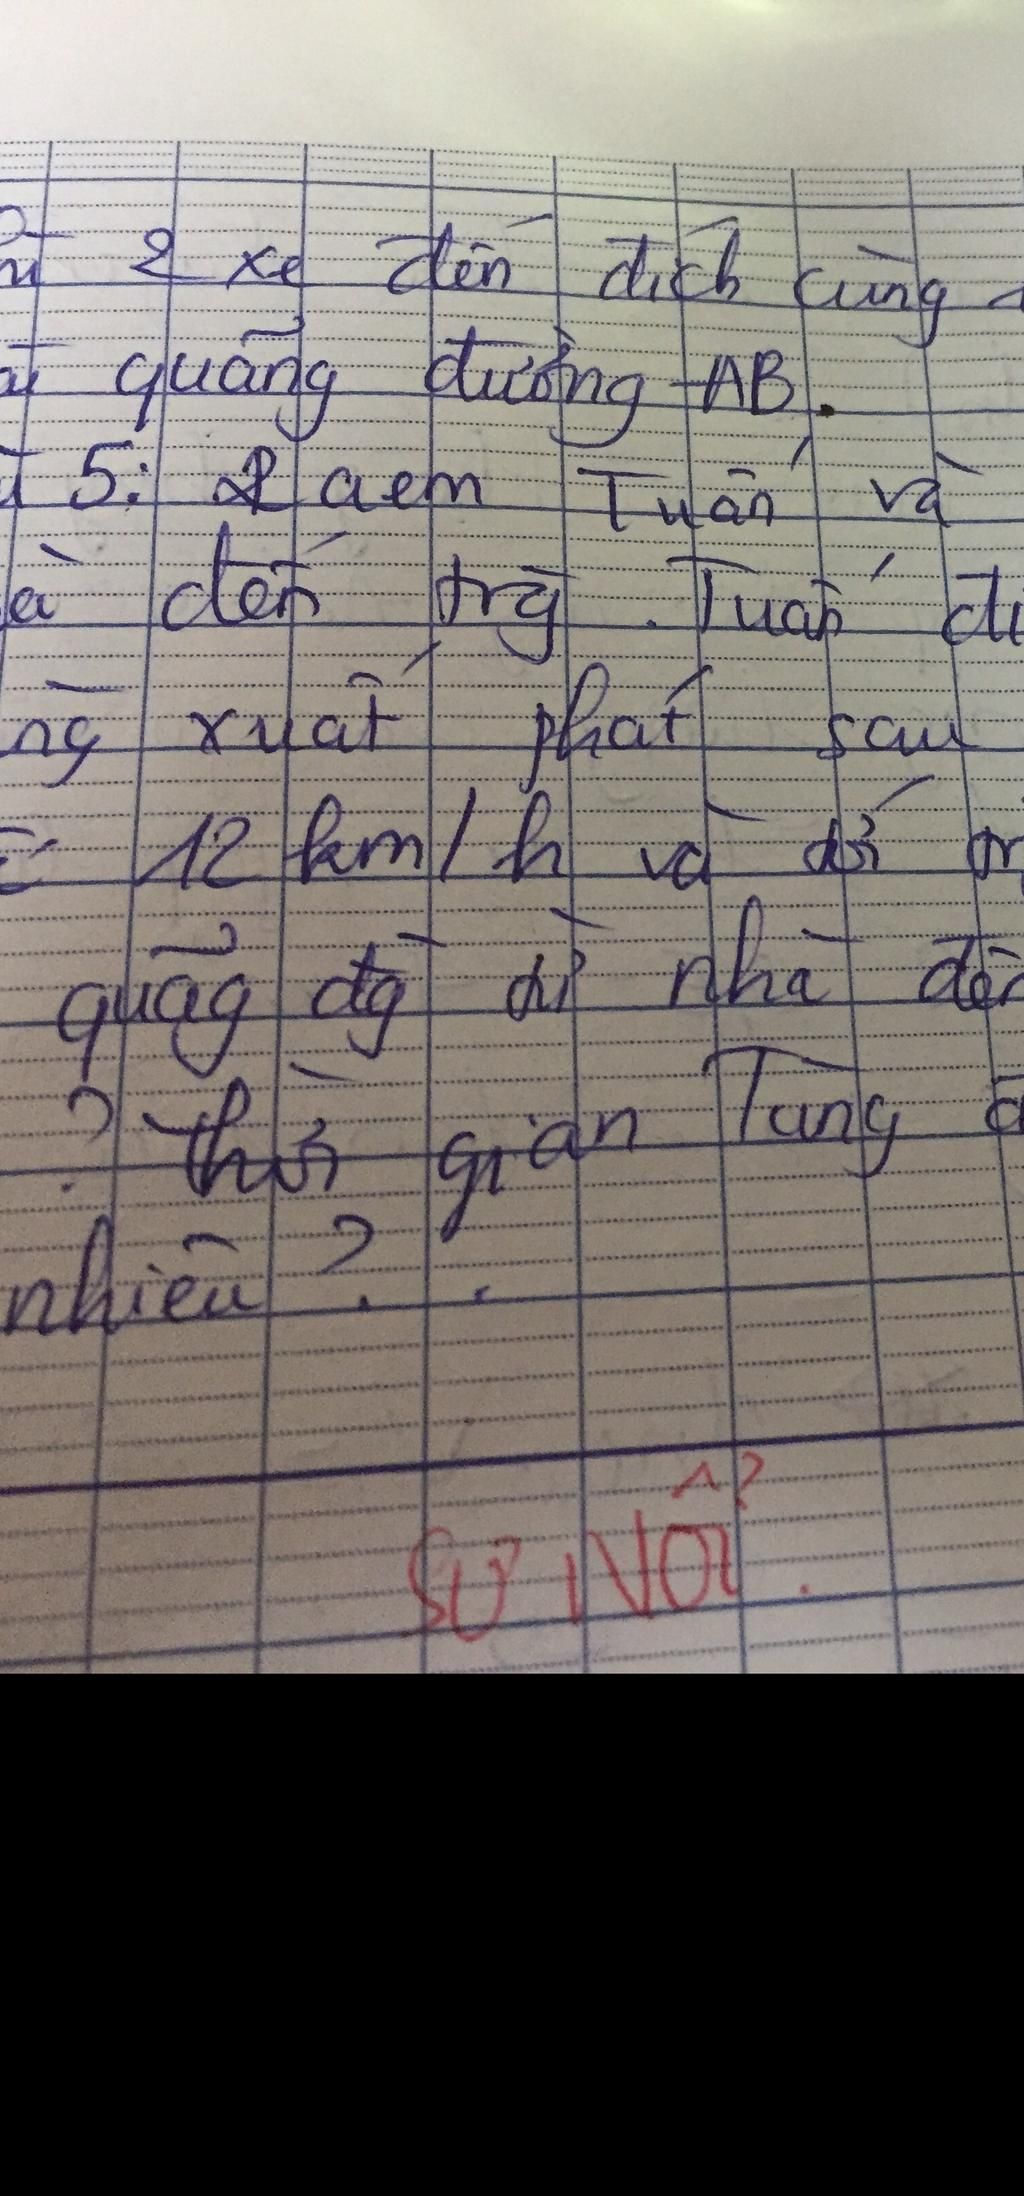 2 xe đến đích cùng
quãng đường AB.
5: 2 a em Tuấn và
đến trg. Tuấn
xuất phát sau
12 km/h và tới
quãg đg từ nhà đến
? thời gian Tùng
nhiêu?.
SỬ NỔI.